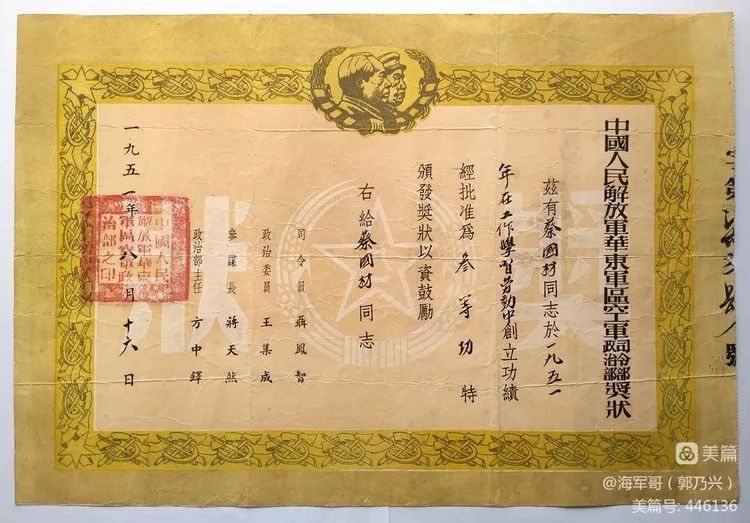 中國人民解放軍華東軍區空軍司令部政治部獎狀
茲有蔡國材同志於一九五一
年在工作學習勞動中創立功績
經批准爲叁等功特
頒發獎狀以資鼓勵
右給蔡國材同志
司令員 聶鳳智
政治委員 王集成
參謀長 蔣天然
政治部主任 方中鐸
一九五一年八月十六日
中國人民
解放軍華東
軍區空軍政
治部之印
獎狀
美篇
@海军哥（郭乃兴）
美篇号: 446136